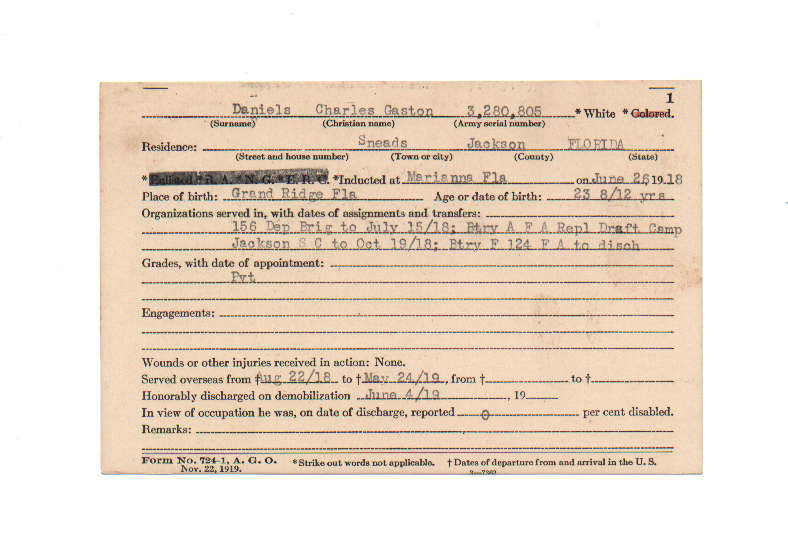 1
Daniels Charles Gaston 3,280,805 *White *Colored.
(Surname) (Christian name) (Army serial number)
Residence: Sneads Jackson FLORIDA
(Street and house number) (Town or city) (County) (State)
*Enlisted *R. A. *N. G. *E. R. C. *Inducted at Marianna Fla on June 26 19 18
Place of birth: Grand Ridge Fla Age or date of birth: 23 8/12 yrs
Organizations served in, with dates of assignments and transfers:
156 Dep Brig to July 15/18; Btry A F A Repl Draft Camp
Jackson S C to Oct 19/18; Btry F 124 F A to disch
Grades, with date of appointment:
Pvt
Engagements:
Wounds or other injuries received in action: None.
Served overseas from †Aug 22/18 to †May 24/19, from † to †
Honorably discharged on demobilization June 4/19, 19
In view of occupation he was, on date of discharge, reported 0 per cent disabled.
Remarks:
Form No. 724-1, A. G. O. *Strike out words not applicable. † Dates of departure from and arrival in the U. S.
Nov. 22, 1919.